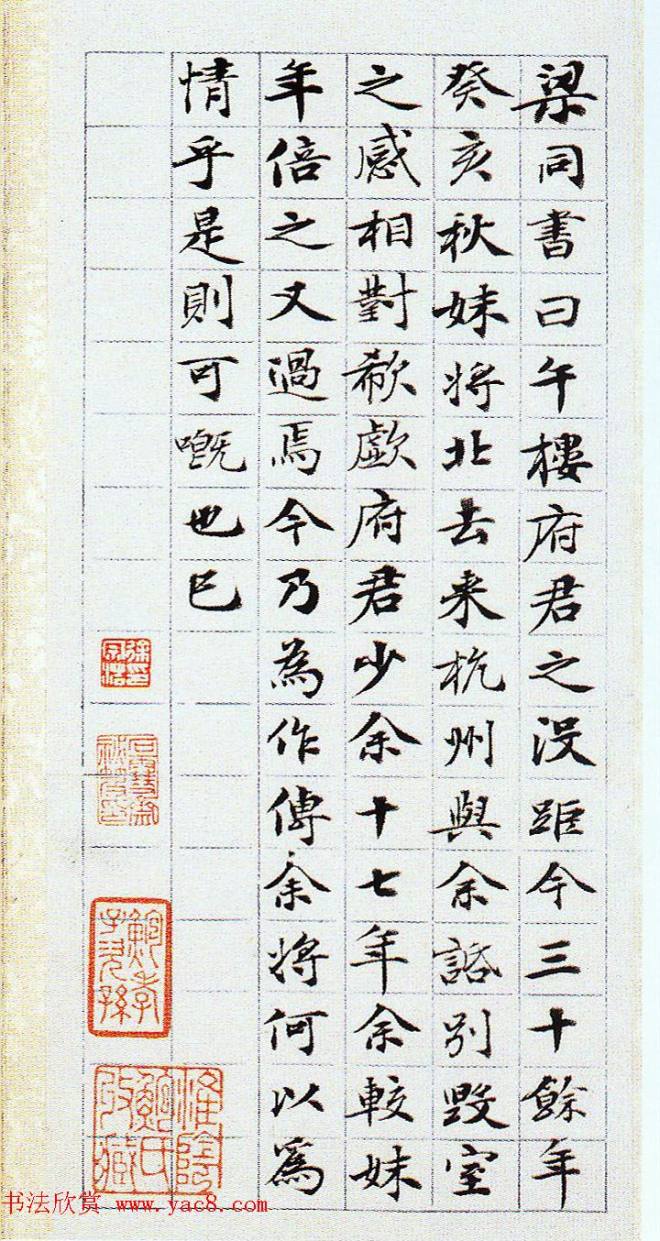 梁同書曰午樓府君之没距今三十餘年
癸亥秋妹將北去来杭州與余話別毀室
之感相對欷歔府君少余十七年余較妹
年倍之又過焉今乃為作傳余將何以爲
情乎是則可嘅也已
淮陰
鮑氏
收藏
书法欣赏 www.yac8.com